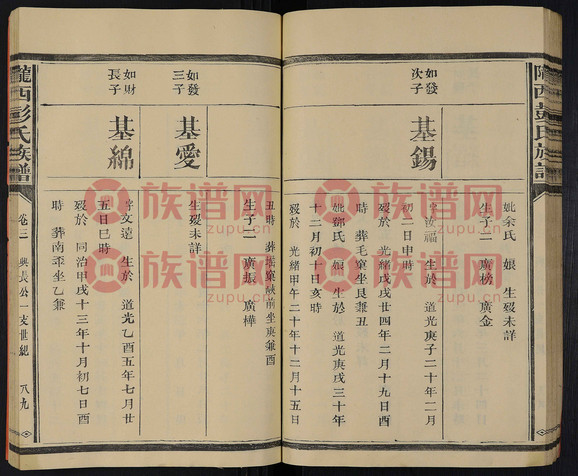 隴西彭氏族譜
妣余氏 娘 生歿未詳
生子二 廣榜 廣金
如發次子
基錫
字汝福 生於 道光庚子二十年二月
初二日申時
歿於 光緒戊戌廿四年二月十九日酉
時 葬毛窠坐艮兼丑
妣鄧氏 娘 生於 道光庚戌三十年
十二月初十日亥時
歿於 光緒甲午二十年十月十五日
丑時 葬 窠 前坐庚兼酉
生子二 廣振 廣樺
如發三子
基愛
生歿未詳
如財長子
基綿
字文遠 生於 道光乙酉五年七月廿
五日巳時
歿於 同治甲戌十三年十月初七日酉
時 葬南 坐乙兼
隴西彭氏族譜
卷三 興長公一支世紀 八九
族谱网
www.zupu.cn
族谱网
www.zupu.cn
族谱网
www.zupu.cn
族谱网
www.zupu.cn